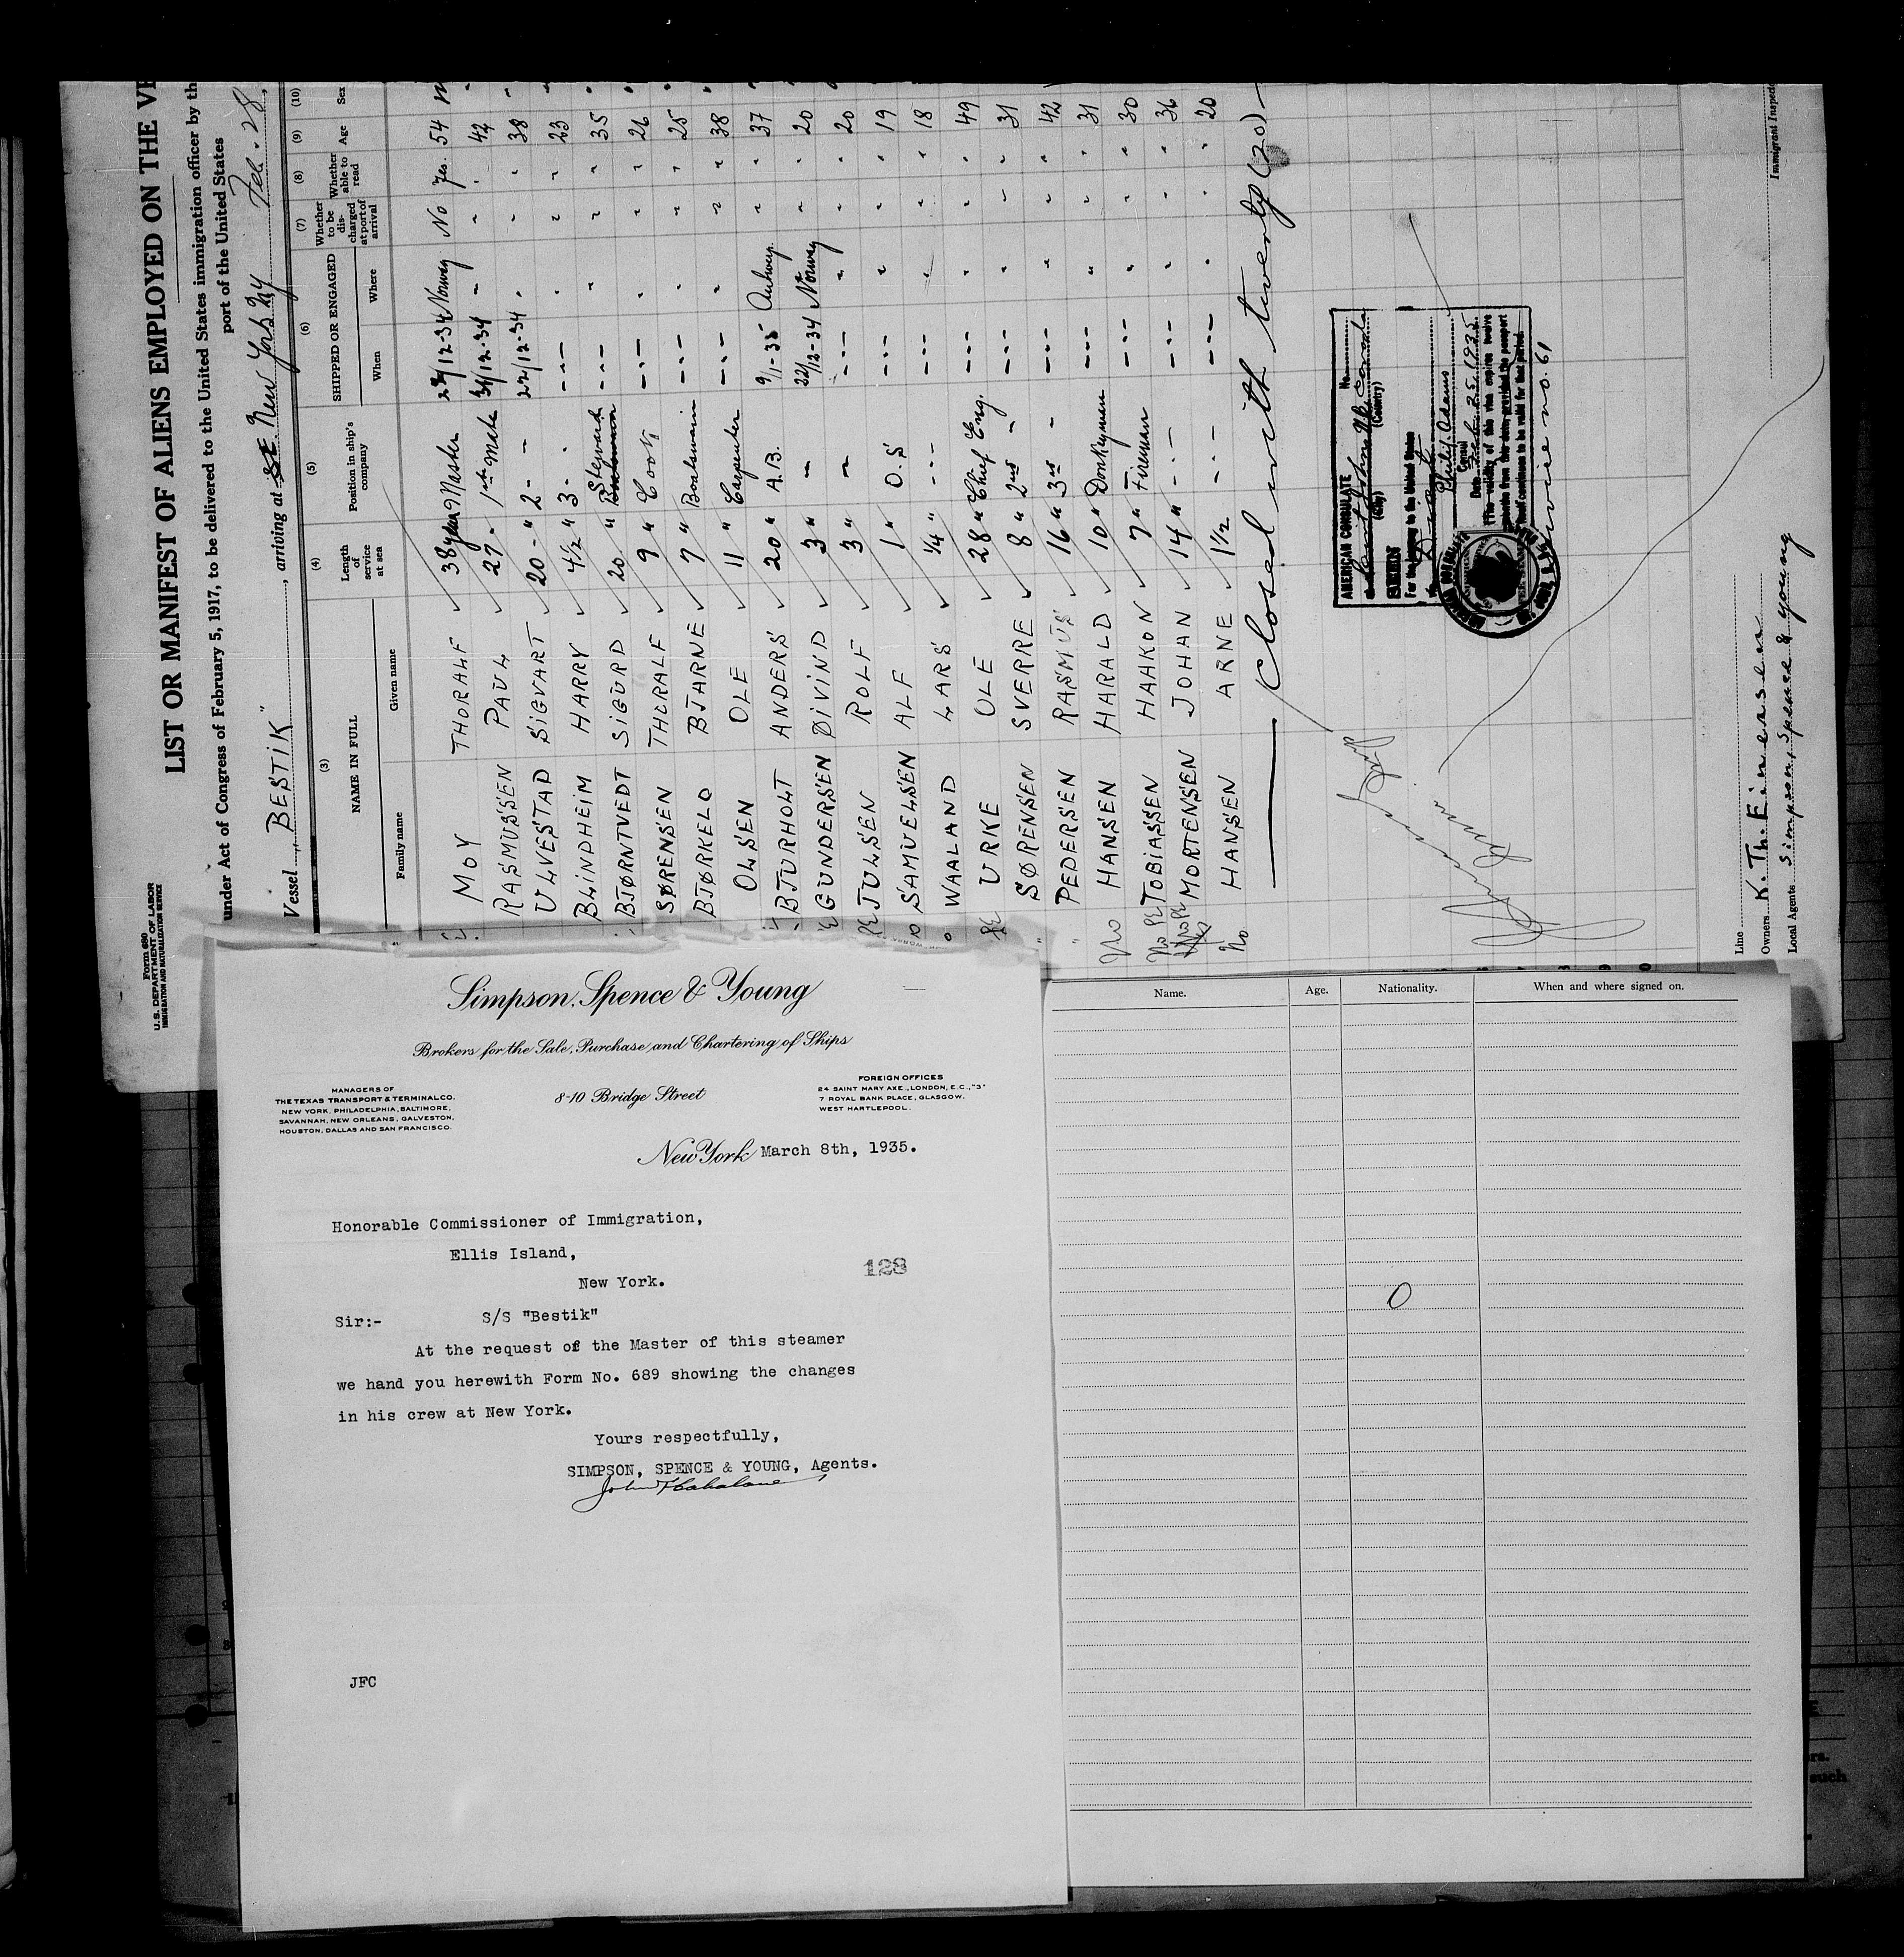 Form 680
U.S. DEPARTMENT OF LABOR
IMMIGRATION AND NATURALIZATION SERVICE
LIST OR MANIFEST OF ALIENS EMPLOYED ON THE VE
under Act of Congress of February 5, 1917, to be delivered to the United States immigration officer by th
port of the United States
Vessel "BESTIK", arriving at New York NY Feb. 28,
(3) (4) (5) (6) (7) (8) (9) (10)
NAME IN FULL Length of service at sea Position in ship's company SHIPPED OR ENGAGED Whether to be discharged at port of arrival Whether able to read Age Sex
Family name Given name When Where
MOY THORALF 38 years Master 22/12-34 Norway No Yes 54 M
RASMUSSEN PAUL 27 " 1ste Mate 31/12-34 - " " 42 "
ULVESTAD SIGVART 20 - " 2 - - 22/12-34 " " " 38 "
BLINDHEIM HARRY 4½ " 3 - - - - - " " " 23 "
BJØRNTVEDT SIGURD 20 " Steward - - - " " " 35 "
SØRENSEN THORALF 9 " Cook - - - " " " 26 "
BJØRKELO BJARNE 7 " Boatswain - - - " " " 25 "
OLSEN OLE 11 " Carpenter - - - " " " 38 "
BJURHOLT ANDERS 20 " A.B. 9/1-35 Antwerp " " 37 "
GUNDERSEN ØIVIND 3 " - 22/12-34 Norway " " 20 "
JULSEN ROLF 3 " - - - - " " " 20
SAMUELSEN ALF 1 " O.S - - - " " " 19
WAALAND LARS ¼ " - - - - - - " " " 18
URKE OLE 28 " Chief Eng. - - - " " " 49
SØRENSEN SVERRE 8 " 2nd - - - - " " " 31
PEDERSEN RASMUS 16 " 3rd - - - - " " " 42
No HANSEN HARALD 10 " Donkeyman - - - " " " 31
No TOBIASSEN HAAKON 7 " Fireman - - - " " " 30
MORTENSEN JOHAN 14 " - - - - - - " " " 36
No HANSEN ARNE 1½ - - - - - - " " " 20
Closed with twenty (20)
AMERICAN CONSULATE No.
Saint John NB Canada
(City) (Country)
SEEN
For the journey to the United States
Philip Adams
Consul
Date Feb. 25, 1935
(The validity of this visa expires twelve
months from this date, provided the passport
itself continues to be valid for that period.
Service no. 61
Immigrant Inspec
Line
Owners K. Th. Einersen
Local Agents Simpson, Spence & Young
Simpson, Spence & Young
Brokers for the Sale, Purchase and Chartering of Ships
MANAGERS OF
THE TEXAS TRANSPORT & TERMINAL CO.
NEW YORK, PHILADELPHIA, BALTIMORE,
SAVANNAH, NEW ORLEANS, GALVESTON,
HOUSTON, DALLAS AND SAN FRANCISCO.
8-10 Bridge Street
FOREIGN OFFICES
24 SAINT MARY AXE., LONDON, E.C., "3"
7 ROYAL BANK PLACE, GLASGOW.
WEST HARTLEPOOL.
New York March 8th, 1935.
Honorable Commissioner of Immigration,
Ellis Island,
New York.
128
Sir:- S/S "Bestik"
At the request of the Master of this steamer
we hand you herewith Form No. 689 showing the changes
in his crew at New York.
Yours respectfully,
SIMPSON, SPENCE & YOUNG, Agents.
JFC
Name. Age. Nationality. When and where signed on.
0
such